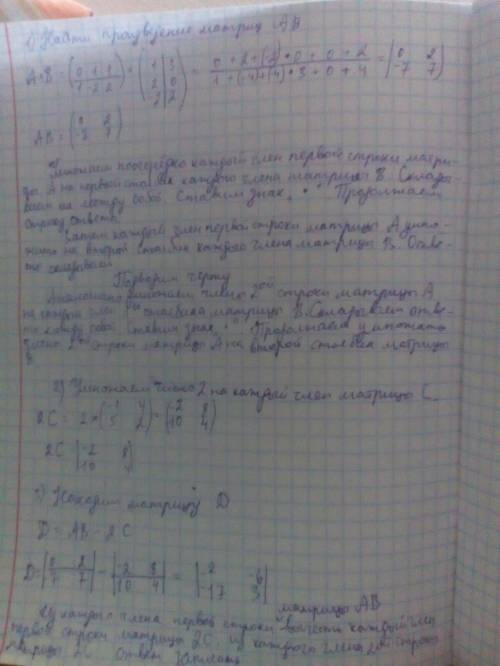 1) Найти произведение матриц AB
A·B = (0 1 1 / 1 -2 2) · (1 3 / 2 0 / -2 2) = 0+2+(-2) • 0+0+2 / 1+(-4)+(-4) • 3+0+4 = |0 2 / -7 7|
AB = (0 2 / -7 7)
Умножаем поочерёдно каждый член первой строки матри-
цы A на первой каждого члена матрицы B. Склады-
ваем их между собой. Ставим знак " • " Продолжаем
строку ответа.
Затем каждый член первой строки матрицы A умно-
жить на второй каждого члена матрицы B. Отве-
ты складываем
Подводим черту
Аналогично умножаем члены 2ой строки матрицы A
на каждый член столбика матрицы B. Складываем отве-
ты между собой. Ставим знак " • " Продолжаем умножать
число 2ой строки матрицы A на второй столбик матрицы
B.
2) Умножаем число 2 на каждый член матрицы C
2C = 2 × (-1 4 / 5 2) = (-2 8 / 10 4)
2C |-2 8 / 10
3) Находим матрицу D
D = AB - 2C
D = |0 2 / -7 7| - |-2 8 / 10 4| = |2 -6 / -17 3|
матрицы AB
Из каждого члена первой строки вычесть каждый член
первой строки матрицы 2C, из каждого члена 2ой строки
матрицы 2C Ответ записать